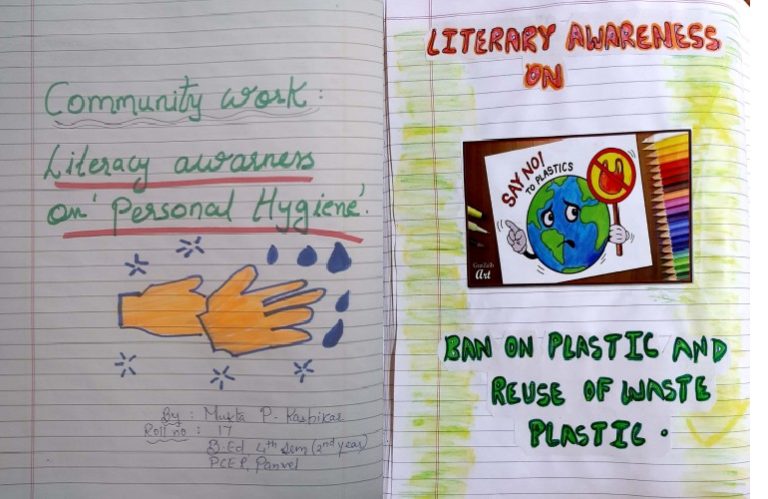 Community work :
Literacy awarness
on 'Personal Hygiene'.
By : Mukta P. Kashikar
Roll no : 17
B.Ed 4th Sem (2nd year)
PCER, Panvel
LITERARY AWARENESS
ON
SAY NO!
TO PLASTICS
Art
BAN ON PLASTIC AND
REUSE OF WASTE
PLASTIC .